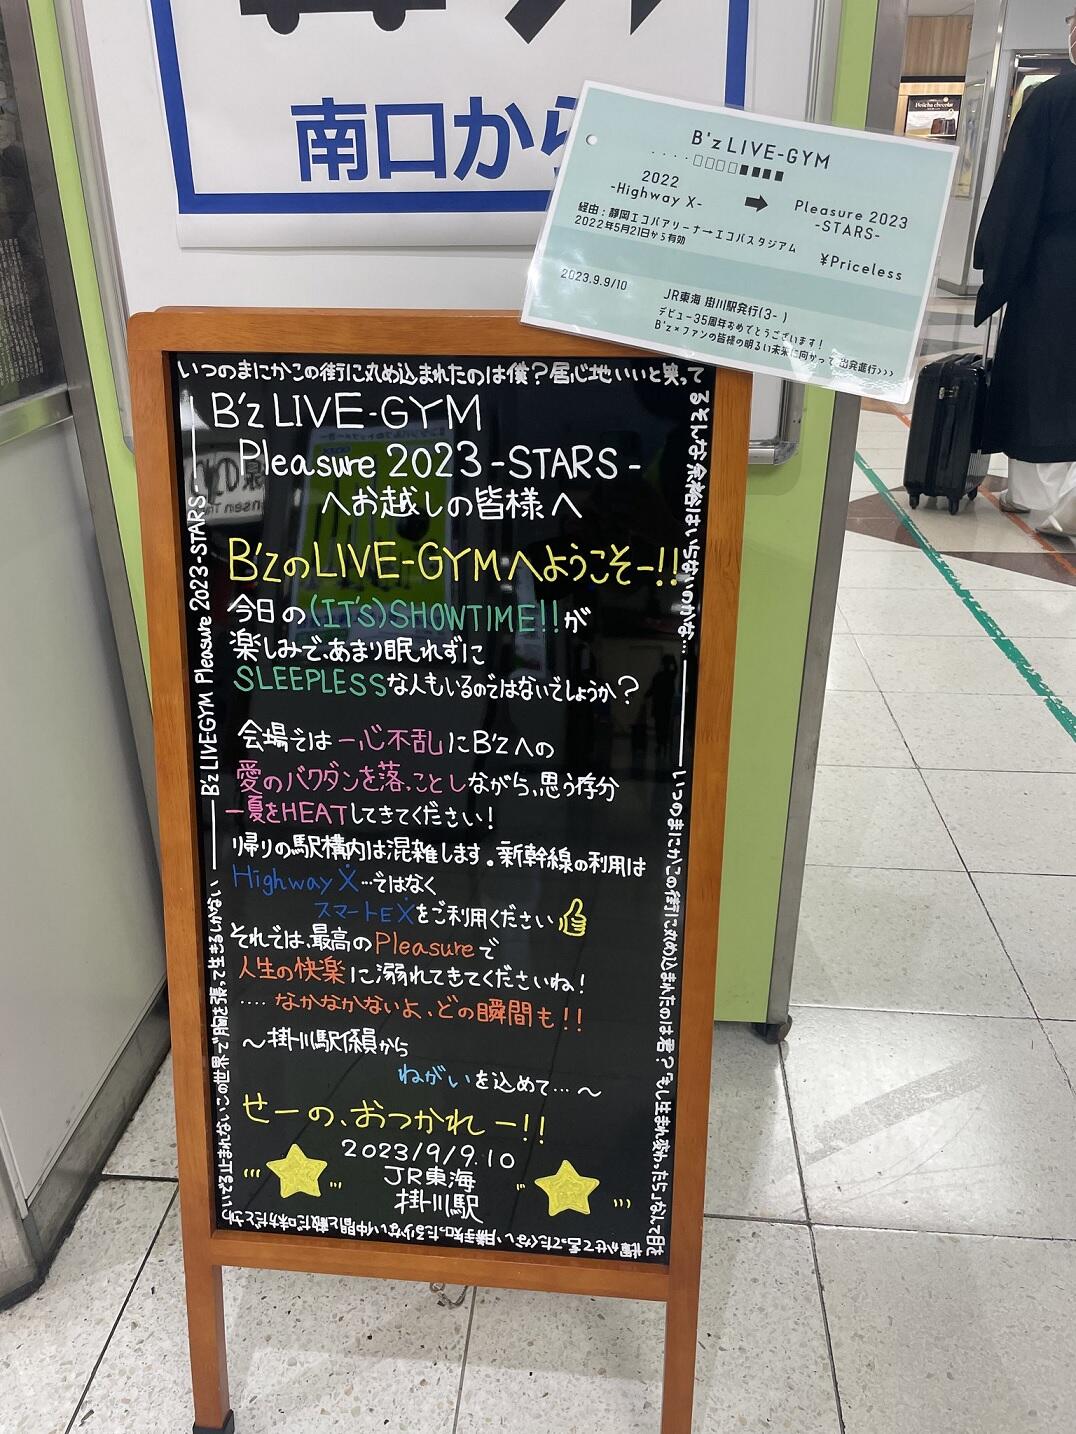 南口から
B'z LIVE-GYM
2022
-Highway X-
Pleasure 2023
-STARS-
経由：静岡エコパアリーナ→エコパスタジアム
2022年5月21日から有効
¥Priceless
2023.9.9/10
JR東海 掛川駅発行(3- )
デビュー35周年おめでとうございます！
B'z×ファンの皆様の明るい未来に向かって 出発進行>>>
いつのまにかこの街に丸め込まれたのは僕？居心地いいと笑って
るそんな余裕はいらないのかな…
B'z LIVE-GYM
Pleasure 2023 -STARS-
へお越しの皆様へ
B'zのLIVE-GYMへようこそー!!
今日の(IT's)SHOWTIME!!が
楽しみで、あまり眠れずに
SLEEPLESSな人もいるのではないでしょうか？
会場では一心不乱にB'zへの
愛のバクダンを落っことしながら、思う存分
一夏をHEATしてきてください！
帰りの駅構内は混雑します。新幹線の利用は
Highway X…ではなく
スマートEXをご利用ください
それでは、最高のPleasureで
人生の快楽に溺れてきてくださいね！
....なかなかないよ、どの瞬間も!!
～掛川駅係員から
ねがいを込めて…～
せーの、おつかれー!!
2023/9/9.10
JR東海
掛川駅
B'z LIVEGYM Pleasure 2023 -STARS-
いつのまにかこの街に丸め込まれたのは君？もし生まれ変わったらなんて目を
輝かせて言ってたくない